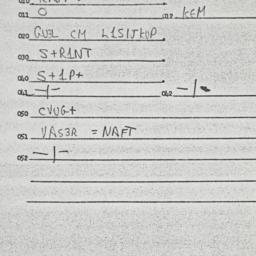 011 O 012 KEM
020 GU3L CM L1S1TKUP
030 S+R1NT
040 S+1P+
041 -/- 042 -/-
050 CVUG+
051 VAS3R = NAFT
052 -/-